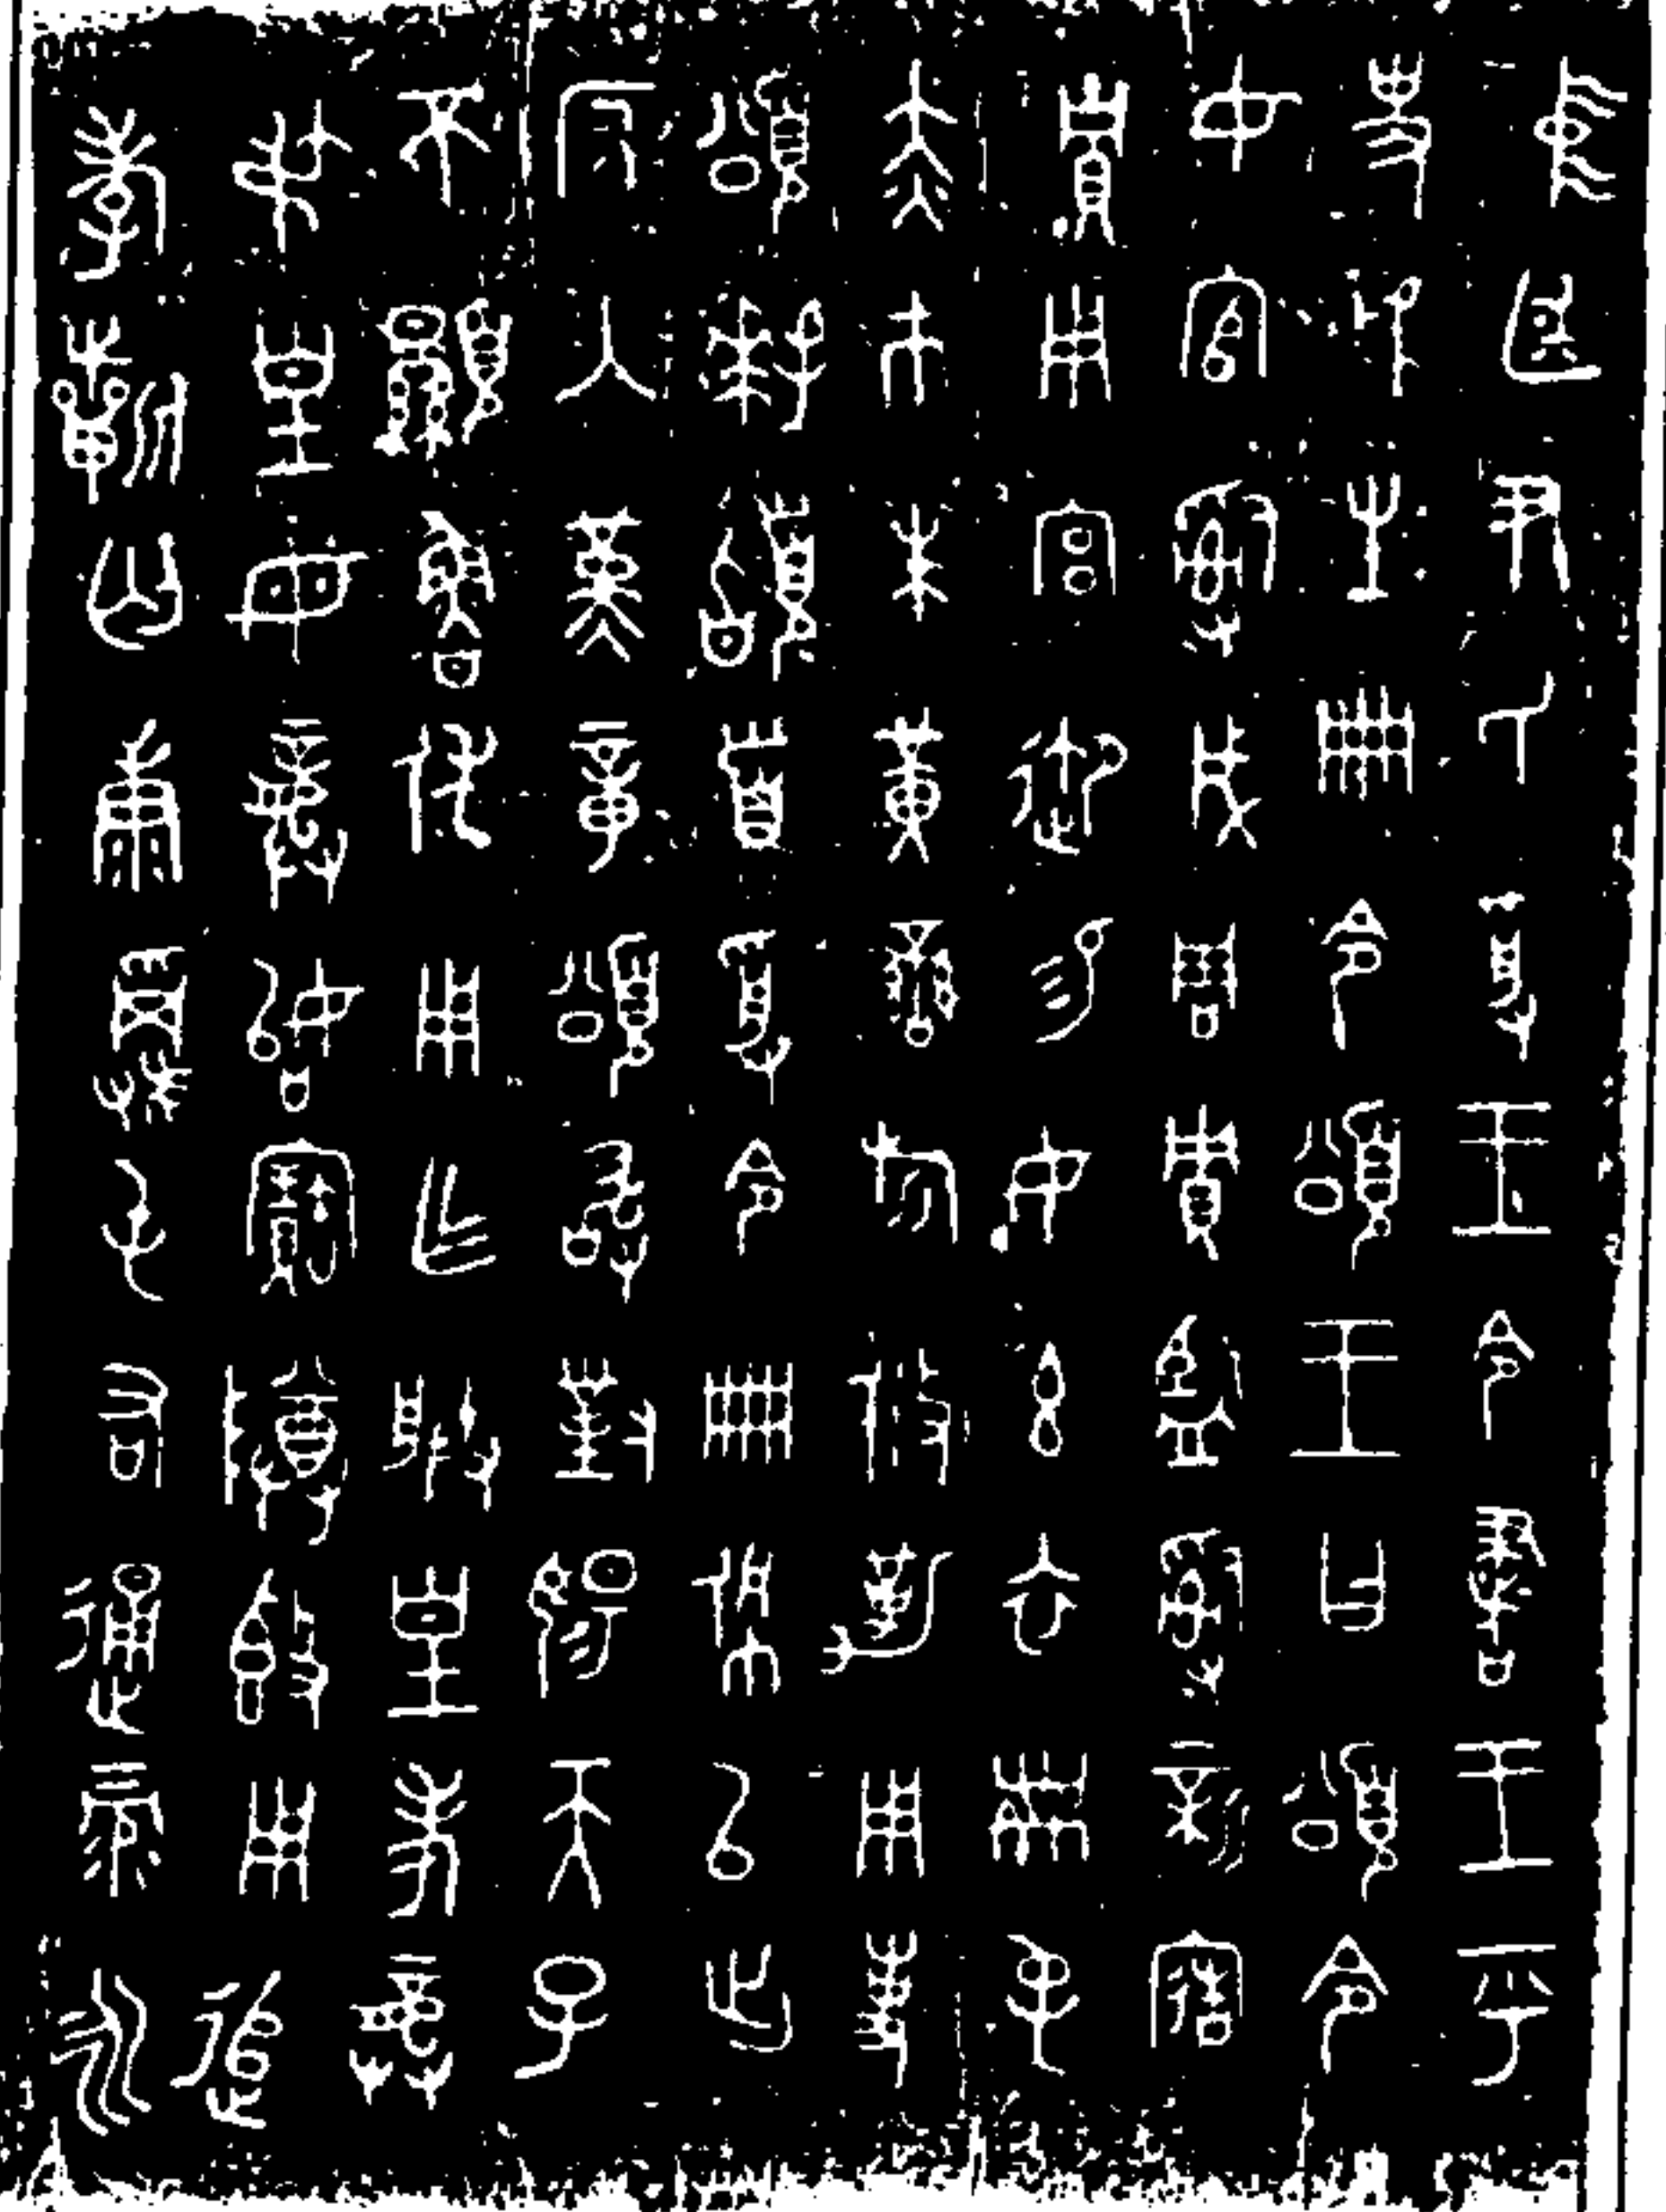 中廷尹氏受王令書王乎
史虢生冊令頌王曰頌令
女官𤔲成周賈監𤔲新造
賈用宮御易女玄衣黹屯
赤巿朱黃䜌旂攸勒用事
頌拜𩒨首受令冊佩以出
反入堇章頌敢對揚天子
不顯魯休用乍朕皇考龏
弔皇母龏始寶尊𣪘用追
孝𣄨匄康𩁹屯右通彔永